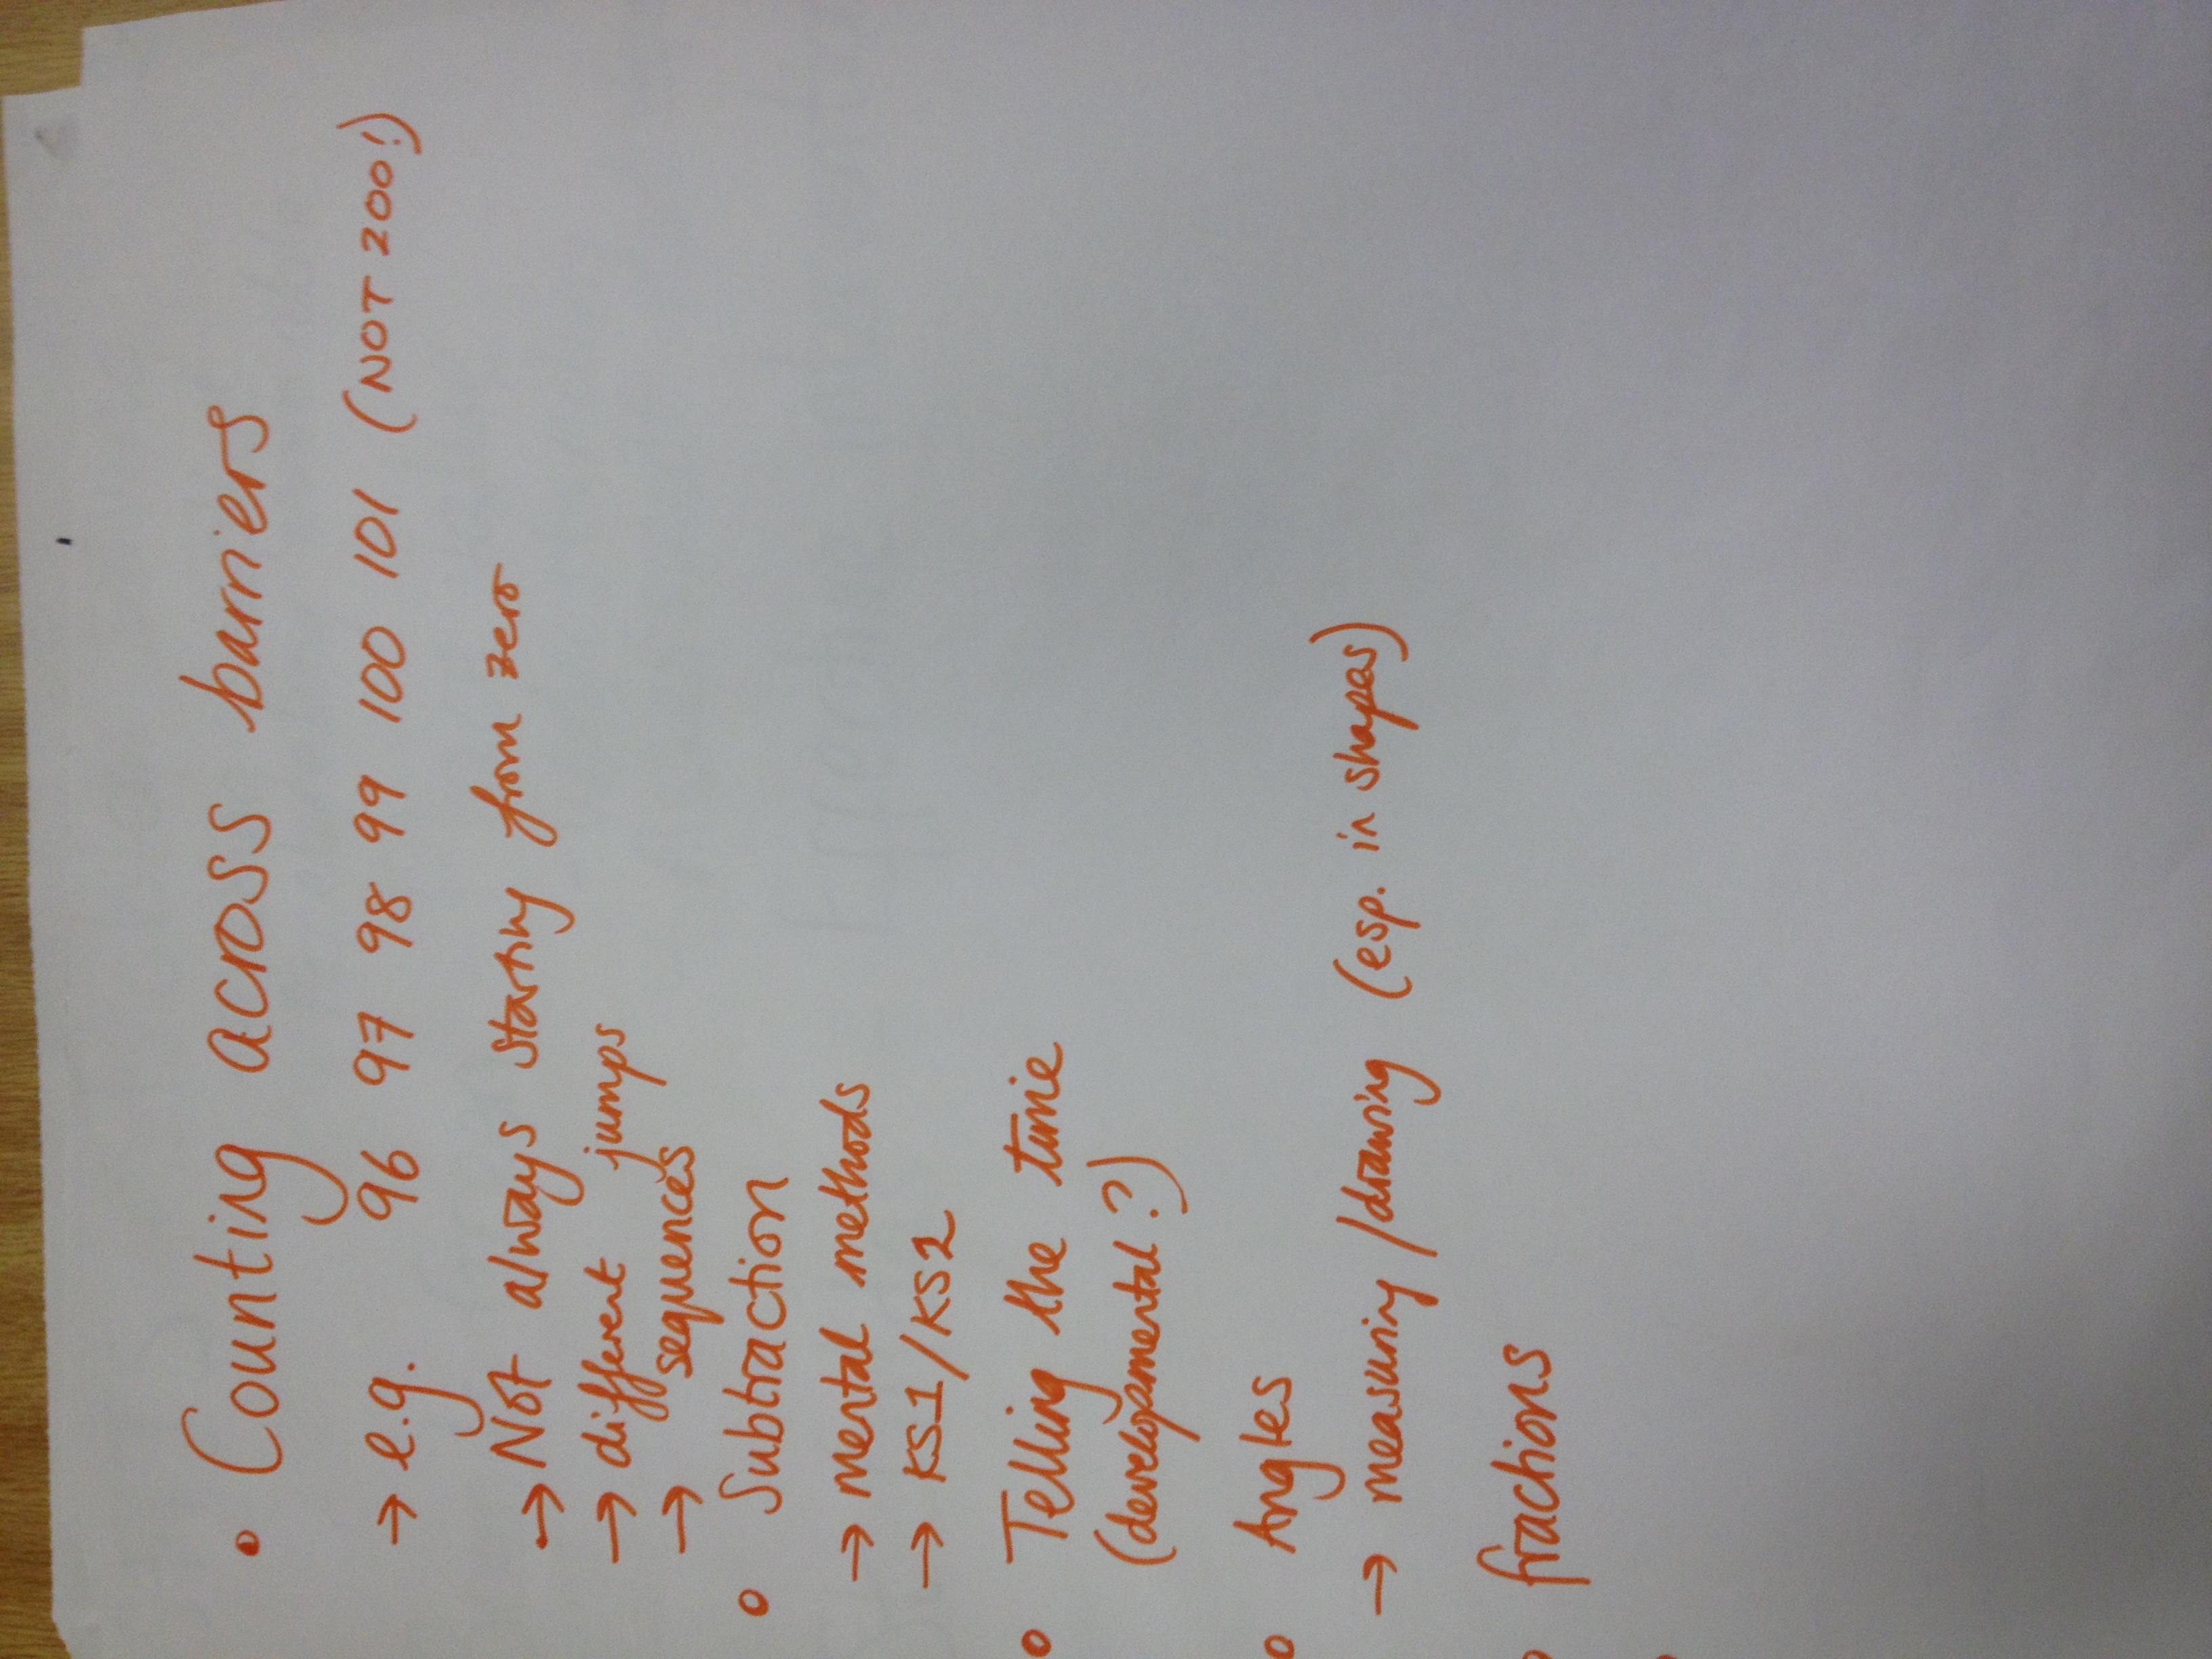 • Counting across barriers
→ e.g. 96 97 98 99 100 101 (NOT 200!)
→ Not always starting from zero
→ different jumps
→ sequences
• Subtraction
→ mental methods
→ KS1/KS2
• Telling the time
(developmental?)
• Angles
→ measuring/drawing (esp. in shapes)
• fractions